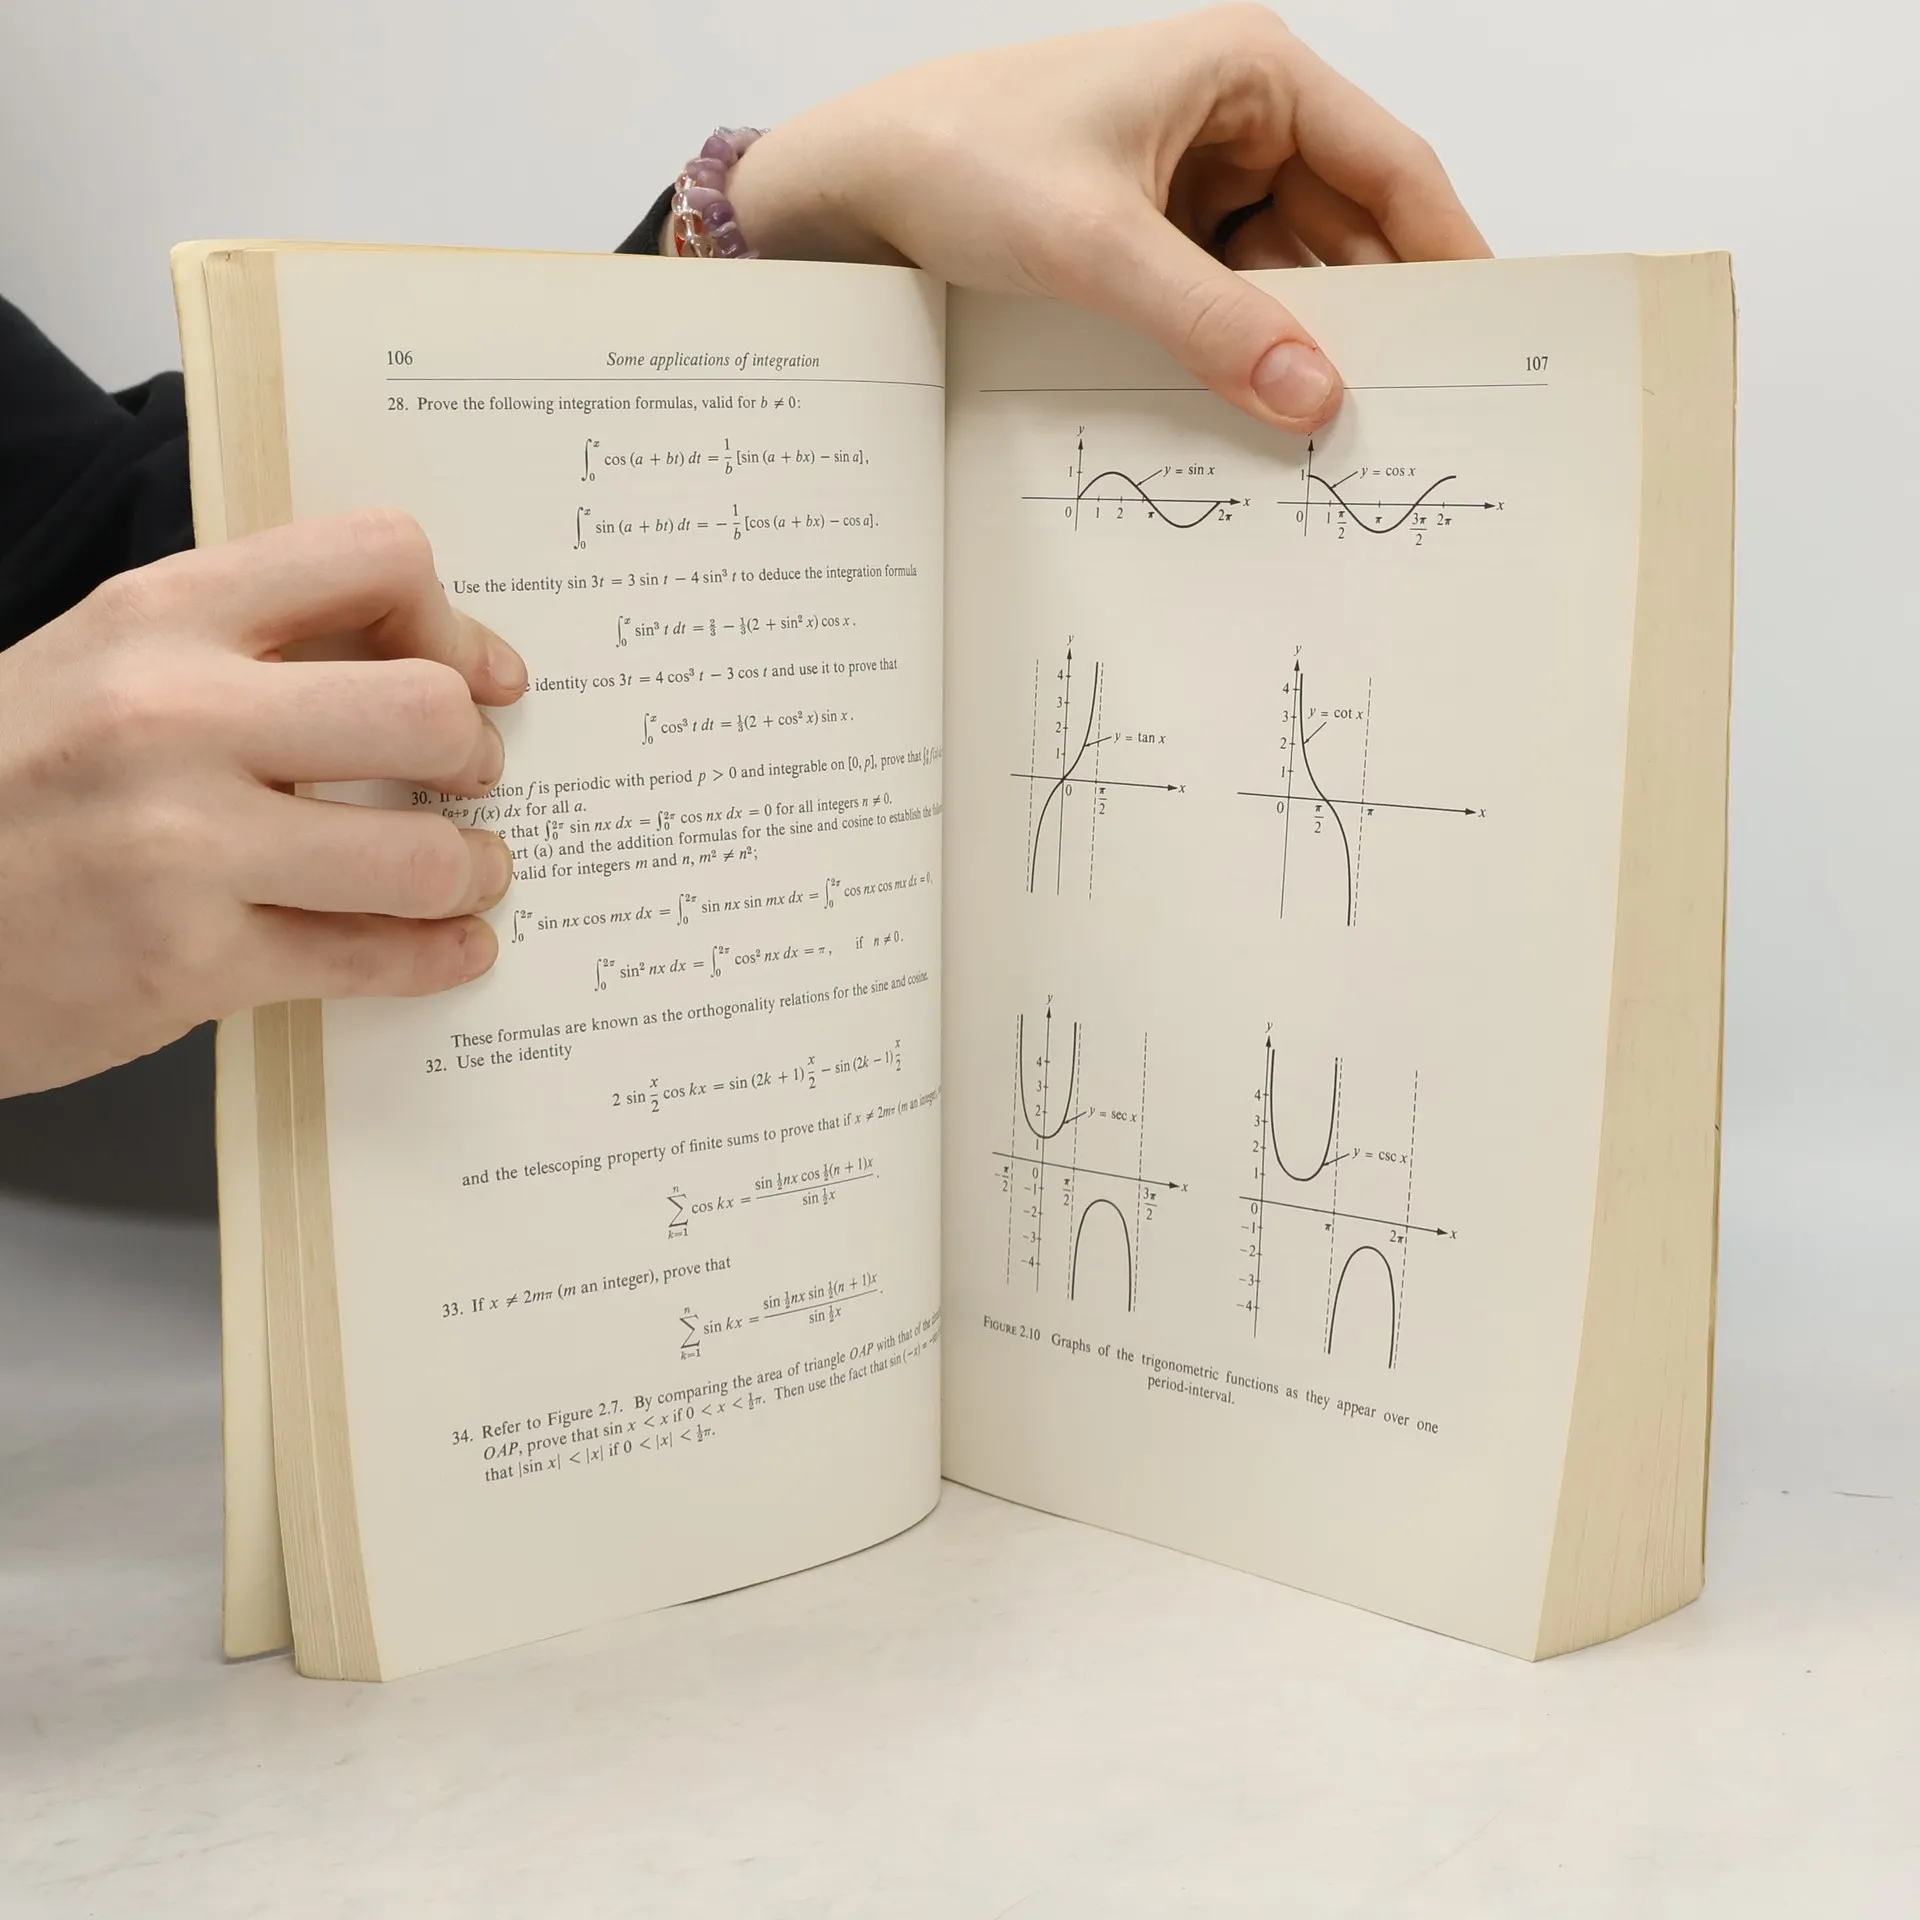 106 Some applications of integration
28. Prove the following integration formulas, valid for b ≠ 0:
∫₀ˣ cos (a + bt) dt = 1/b [sin (a + bx) − sin a],
∫₀ˣ sin (a + bt) dt = − 1/b [cos (a + bx) − cos a].
Use the identity sin 3t = 3 sin t − 4 sin³ t to deduce the integration formula
∫₀ˣ sin³ t dt = 2/3 − 1/3(2 + sin² x) cos x.
identity cos 3t = 4 cos³ t − 3 cos t and use it to prove that
∫₀ˣ cos³ t dt = 1/3(2 + cos² x) sin x.
30. f is periodic with period p > 0 and integrable on [0, p], prove that
f(x) dx for all a.
that ∫₀²π sin nx dx = ∫₀²π cos nx dx = 0 for all integers n ≠ 0.
(a) and the addition formulas for the sine and cosine to establish the
valid for integers m and n, m² ≠ n²;
∫₀²π sin nx cos mx dx = ∫₀²π sin nx sin mx dx = ∫₀²π cos nx cos mx dx = 0,
∫₀²π sin² nx dx = ∫₀²π cos² nx dx = π, if n ≠ 0.
These formulas are known as the orthogonality relations for the sine and cosine.
32. Use the identity
2 sin x/2 cos kx = sin (2k + 1) x/2 − sin (2k − 1) x/2
and the telescoping property of finite sums to prove that if x ≠ 2mπ (m an integer),
∑ₖ₌₁ⁿ cos kx = sin ½nx cos ½(n + 1)x / sin ½x.
33. If x ≠ 2mπ (m an integer), prove that
∑ₖ₌₁ⁿ sin kx = sin ½nx sin ½(n + 1)x / sin ½x.
34. Refer to Figure 2.7. By comparing the area of triangle OAP with that of the
OAP, prove that sin x < x if 0 < x < ½π. Then use the fact that sin (−x) =
that |sin x| < |x| if 0 < |x| < ½π.
107
y y
1 y = sin x 1 y = cos x
x x
0 1 2 π 2π 0 1 π/2 π 3π/2 2π
y y
4 4
3 3 y = cot x
2 y = tan x 2
1 1
0 π/2 x 0 π/2 π x
y y
4 4
3 3
2 y = sec x 2
1 1 y = csc x
−π/2 0 π/2 3π/2 x 0 π 2π x
−1 −1
−2 −2
−3 −3
−4 −4
FIGURE 2.10 Graphs of the trigonometric functions as they appear over one
period-interval.